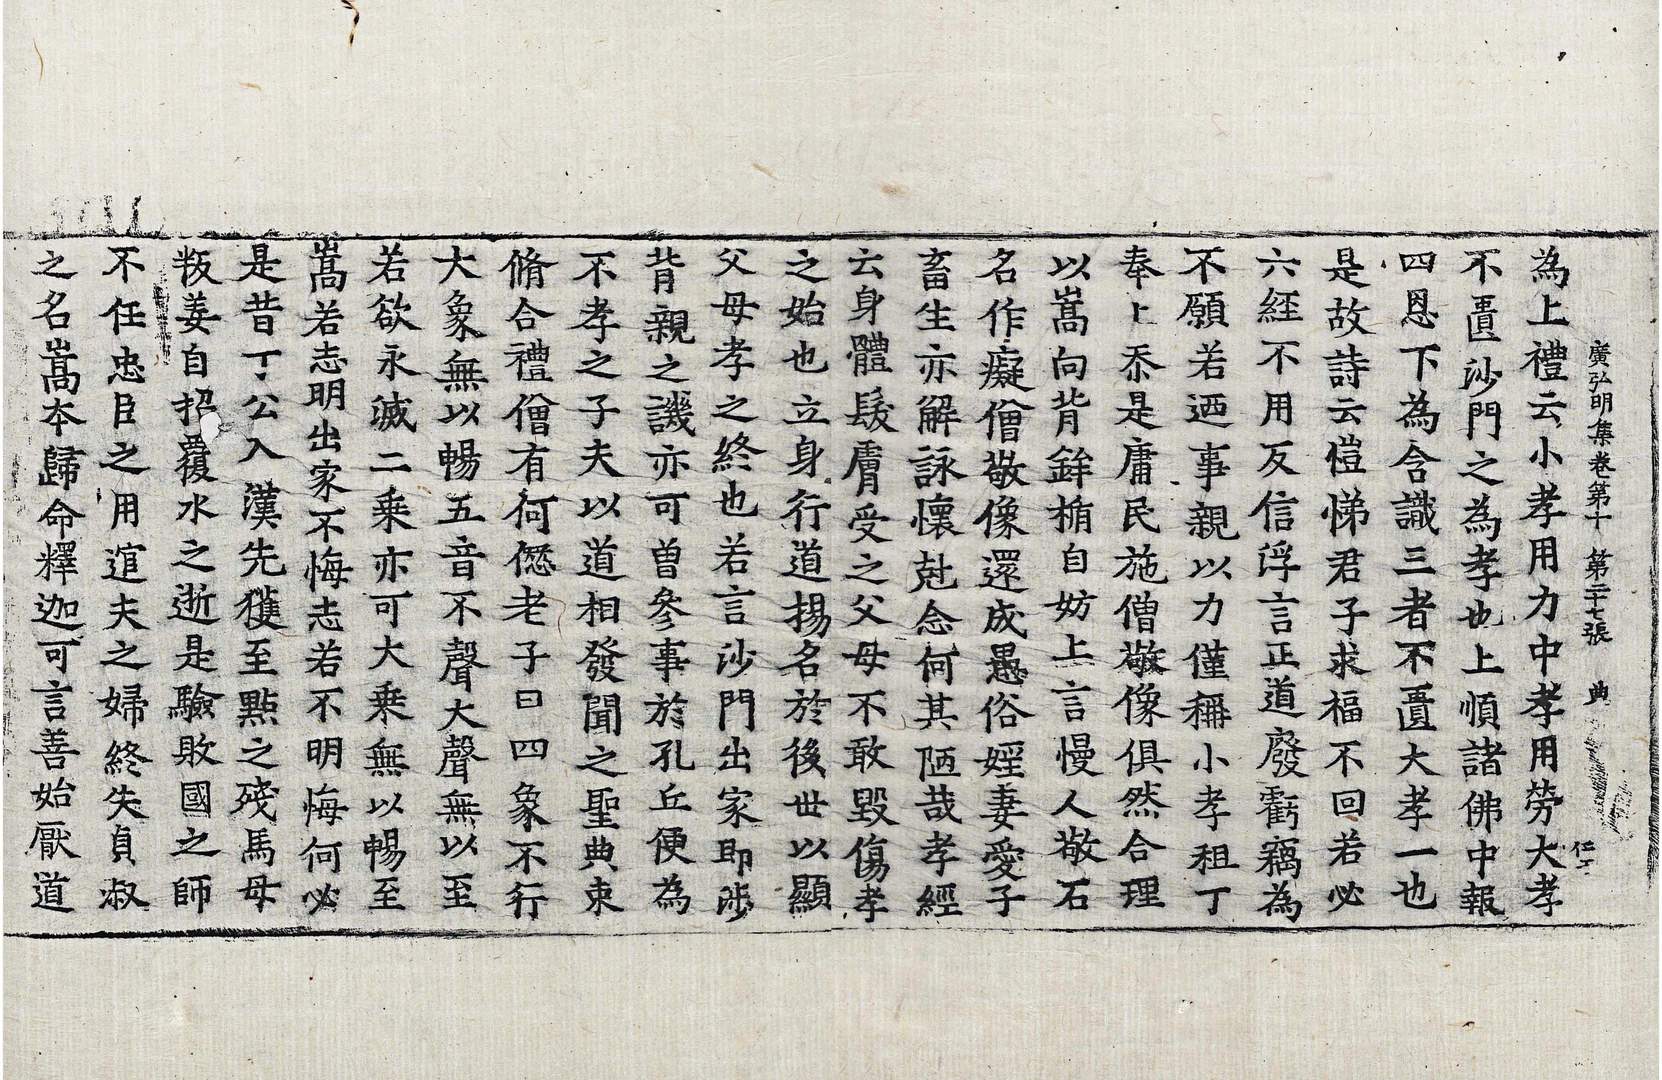 廣弘明集卷第十　第二十七張　典
仁ㄒ
為上禮云小孝用力中孝用勞大孝
不匱沙門之為孝也上順諸佛中報
四恩下為含識三者不匱大孝一也
是故詩云愷悌君子求福不回若必
六經不用反信浮言正道廢虧竊為
不願若迺事親以力僅稱小孝租丁
奉上忝是庸民施僧敬像俱然合理
以嵩向背鉾楯自妨上言慢人敬石
名作癡僧敬像還成愚俗婬妻愛子
畜生亦解詠懷尅念何其陋哉孝經
云身體髮膚受之父母不敢毀傷孝
之始也立身行道揚名於後世以顯
父母孝之終也若言沙門出家即涉
背親之譏亦可曾參事於孔丘便為
不孝之子夫以道相發聞之聖典束
脩合禮僧有何愆老子曰四象不行
大象無以暢五音不聲大聲無以至
若欲永滅二乗亦可大乗無以暢至
嵩若志明出家不悔志若不明悔何必
是昔丁公入漢先獲至點之殘馬母
叛姜自招覆水之逝是驗敗國之師
不任忠臣之用逭夫之婦終失貞叔
之名嵩本歸命釋迦可言善始厭道